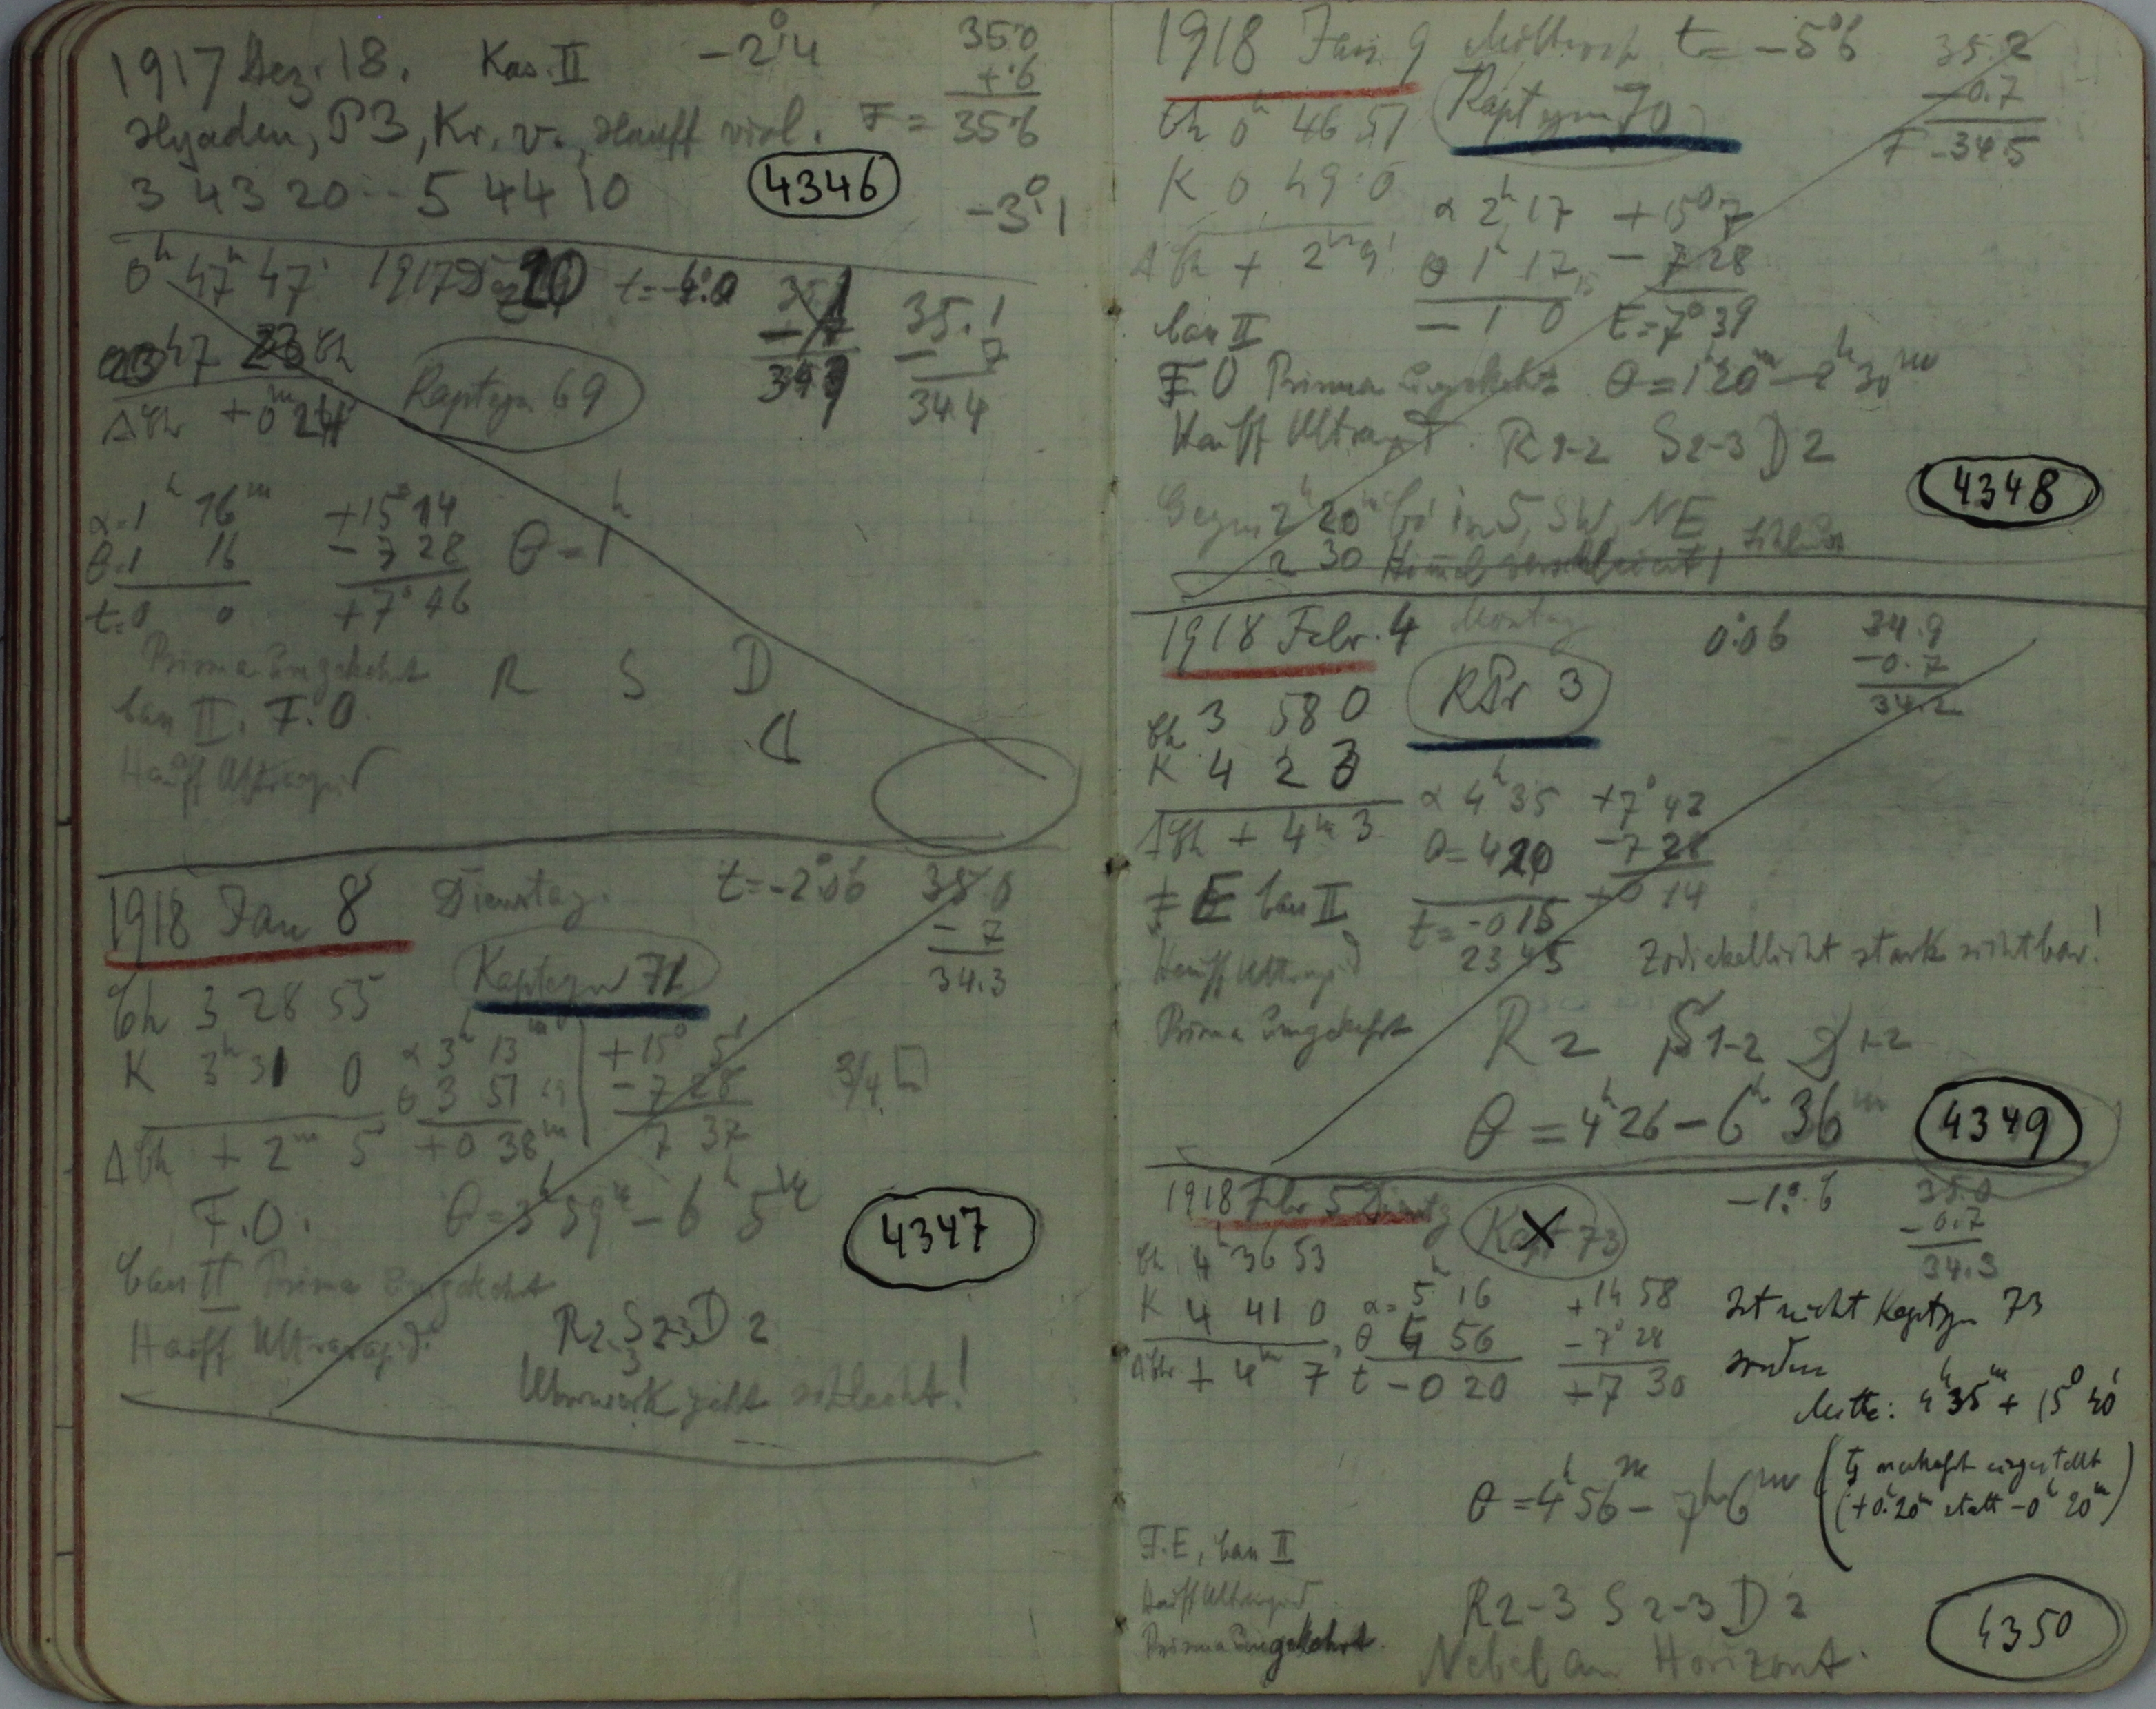 1917 Dez. 18. Kas. II -2°.4 35.0
+.6
Hyaden, P3, Kr. v., Hauff viol. F = 35.6
3 43 20 -- 5 44 10 4346 -3°.1
0h 47m 47s 1917 Dez 20 t=-4°.0 35.1
47 23 Uh -7
ΔUhr +0m 24 Kapteyn 69 34.4
α=1h 16m +15° 14
θ=1 16 -7 28 θ=1h
t=0 0 +7° 46
Prisma umgekehrt R S D
Cam II. F.O.
Hauff Ultrarapid
1918 Jan 8 Dienstag. t=-2°.06 35.0
-7
34.3
Kapteyn 71
Uh 3 28 55
K 3h 31 0 α 3h 13m +15° 5'
θ 3 51 -7 28 3/4
ΔUh + 2m 5 +0 38m 7 37
F.O. θ=3h 59m - 6h 5m 4347
II Prisma umgekehrt
Hauff Ultrarapid. R2 S2-3 D 2
Uhrwerk geht schlecht!
1918 Jan. 9 Mittwoch t= -5°.6 35.2
-0.7
F 34.5
Uh 0h 46 51 Kapteyn 70
K 0 49 0
α 2h 17 +15° 7
ΔUh + 2m 9s θ 1h 17 -7 28
II -1 0 E=7° 39
F.O Prisma umgekehrt θ=1h 20m - 2h 30m
Hauff Ultrarapid. R1-2 S2-3 D2
4348
Gegen 2h 20m in S, SW, NE
2 30 Himmel verschleiert!
1918 Febr. 4 Montag 0°.06 34.9
-0.7
34.2
KPr 3
Uh 3 58 0
K 4 2 3
α 4h 35 +7° 42
ΔUh + 4m 3 θ=4 20 -7 28
F E II t=-0 15 +0 14
Hauff Ultrarapid 23 45 Zodiakallicht stark sichtbar!
Prisma umgekehrt R 2 S 1-2 D 1-2
θ = 4h 26 - 6h 36m 4349
1918 Febr 5 Dienstg Kapt 73 -1°.6 35.0
-0.7
34.3
Uh 4h 36 53
K 4 41 0 α= 5h 16 +14 58 Ist nicht Kapteyn 73
θ 4 56 -7° 28 sondern
ΔUhr + 4m 7 t -0 20 +7 30
Mitte: 4h 35m + 15° 40'
θ = 4h 56m - 7h 6m (tg verkehrt eingestellt
(+0h 20m statt -0h 20m)
F.E, II
Hauff Ultrarapid R2-3 S 2-3 D 2
Prisma umgekehrt. 4350
Nebel am Horizont.